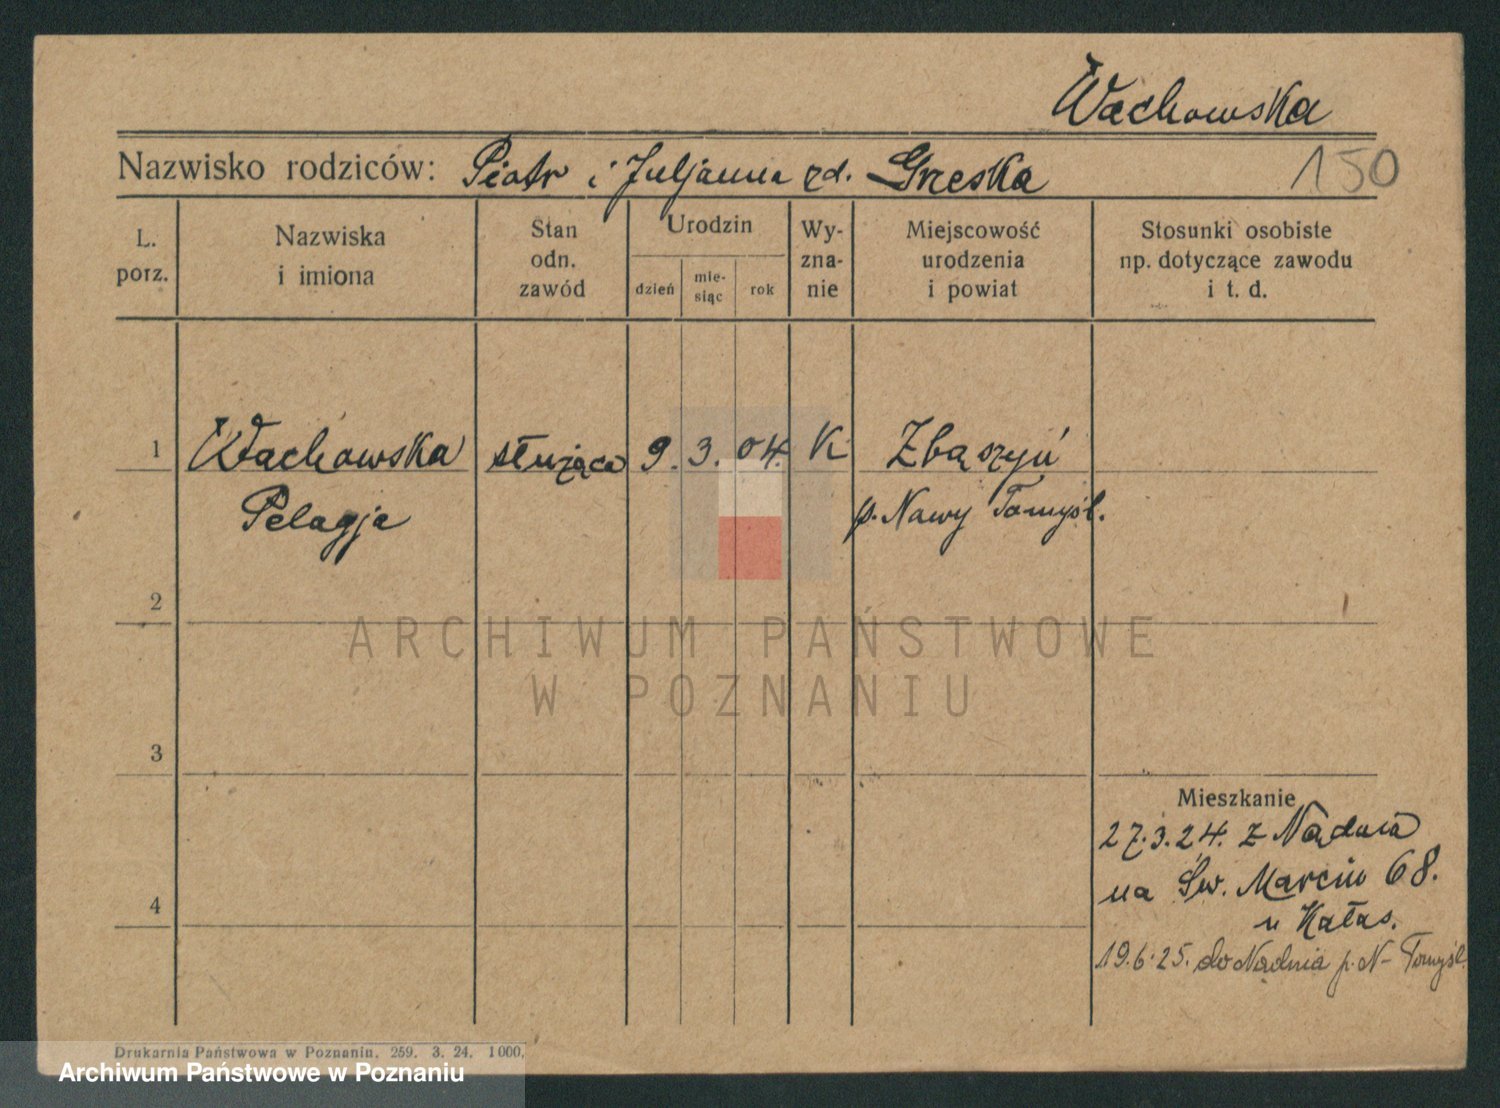 Wachowska
Nazwisko rodziców: Piotr i Juljanna zd. Grzeska
150
L. porz.
Nazwiska i imiona
Stan odn. zawód
Urodzin
dzień
mie-siąc
rok
Wy-zna-nie
Miejscowość urodzenia i powiat
Stosunki osobiste np. dotyczące zawodu i t. d.
1 Wachowska służąca 9. 3. 04. K Zbąszyń
Pelagja p. Nowy Tomyśl.
2
3
4
Mieszkanie
27.3.24. z Nądnia
na Św. Marcin 68.
u Kałas.
19.6.25. do Nądnia p. N-Tomyśl.
ARCHIWUM PAŃSTWOWE
W POZNANIU
Drukarnia Państwowa w Poznaniu. 259. 3. 24. 1000.
Archiwum Państwowe w Poznaniu